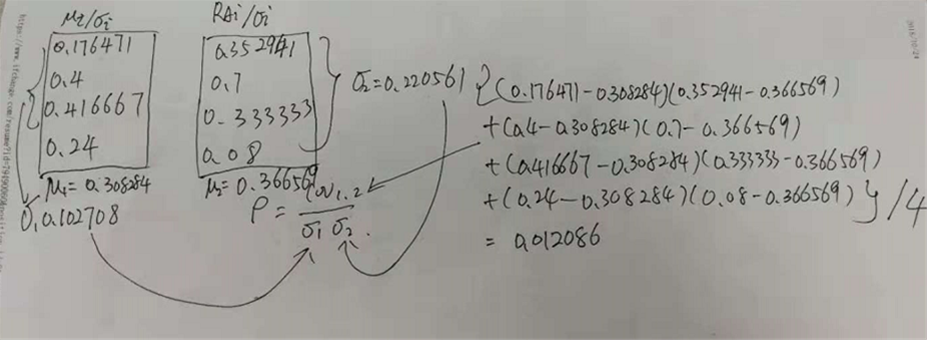 μi/σi
0.176471
0.4
0.416667
0.24
μ1=0.308284
σ1 0.102708
RAi/σi
0.352941
0.7
0.333333
0.08
μ2=0.366569
σ2=0.220561
ρ = Cov1.2 / σ1 σ2.
{(0.176471-0.308284)(0.352941-0.366569)
+(0.4-0.308284)(0.7-0.366569)
+(0.416667-0.308284)(0.333333-0.366569)
+(0.24-0.308284)(0.08-0.366569)}/4
= 0.012086
2018/10/24